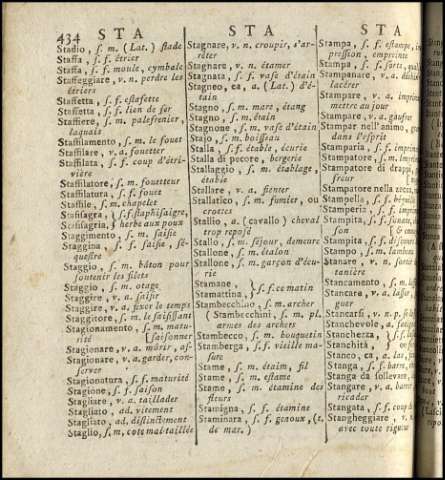 434 STA STA STA
Stadio, s. m. (Lat.) stade
Staffa, s. f. étrier
Staffa, s. f. moule, cymbale
Staffeggiare, v. n. perdre les
étriers
Staffetta, s. f. estafette
Staffetta, s. f. lien de fer
Staffiere, s. m. palefrenier,
laquais
Staffilamento, s. m. le fouet
Staffilare, v. a. fouetter
Staffilata, s. f. coup d'étri-
vière
Staffilatore, s. m. fouetteur
Staffilatura, s. f. fouet
Staffile, s. m. chapelet
Stafisagra, } s. f. staphisaigre,
Stafisagria, } herbe aux poux
Staggimento, s. m. saisie
Staggina, s. f. saisie, sé-
questre
Staggio, s. m. bâton pour
soutenir les filets
Staggio, s. m. otage
Staggire, v. a. saisir
Staggire, v. a. fixer le temps
Staggitore, s. m. le saisissant
Stagionamento, s. m. matu-
rité [saisonner
Stagionare, v. a. mûrir, as-
Stagionare, v. a. garder, con-
server
Stagionatura, s. f. maturité
Stagione, s. f. saison
Stagliare, v. a. taillader
Stagliato, ad. vitement
Stagliato, ad. distinctement
Staglio, s. m. cote mal-taillée
Stagnare, v. n. croupir, s'ar-
rêter
Stagnare, v. a. étamer
Stagnata, s. f. vase d'étain
Stagneo, ea, a. (Lat.) d'é-
tain
Stagno, s. m. mare, étang
Stagno, s. m. étain
Stagnone, s. m. vase d'étain
Stajo, s. m. boisseau
Stalla, s. f. étable, écurie
Stalla di pecore, bergerie
Stallaggio, s. m. établage,
étable
Stallare, v. a. fienter
Stallatico, s. m. fumier, ou
crottes
Stallio, a. (cavallo) cheval
trop reposé
Stallo, s. m. séjour, demeure
Stallone, s. m. étalon
Stallone, s. m. garçon d'écu-
rie
Stamane, } s. f. ce matin
Stamattina, }
Stambecchino, s. m. archer
(Stambecchini, s. m. pl.
armes des archers
Stambecco, s. m. bouquetin
Stamberga, s. f. vieille ma-
sure
Stame, s. m. étaim, fil
Stame, s. m. estame
Stame, s. m. étamine des
fleurs
Stamigna, s. f. étamine
Staminara, s. f. genoux, (t.
de mar.)
Stampa, s. f. estampe, im-
pression, empreinte
Stampa, s. f. sorte,
Stampanare, v. a.
lacérer
Stampare, v. a.
mettre au jour
Stampare, v. a. gaufrer
Stampar nell'animo,
dans l'esprit
Stamparia, s. f.
Stampatore, s. m.
Stampatore di drappi,
freur
Stampatore nella zecca,
Stampella, s. f. béquille
Stamperia, s. f.
Stampita, s. f.
son
Stampita, s. f.
Stampo, s. m.
Stanare, v. n.
tanière
Stancamento, s. m.
Stancare, v. a.
guer
Stancarsi, v. n. p.
Stanchevole, a.
Stanchezza, } s. f.
Stanchità, }
Stanco, ca, a. las,
Stanga, s. f. barre,
Stanga da sollevar,
Stangare, v. a.
ricader
Stangata, s. f. coup
Stangheggiare, v. n.
avec toute rigueur